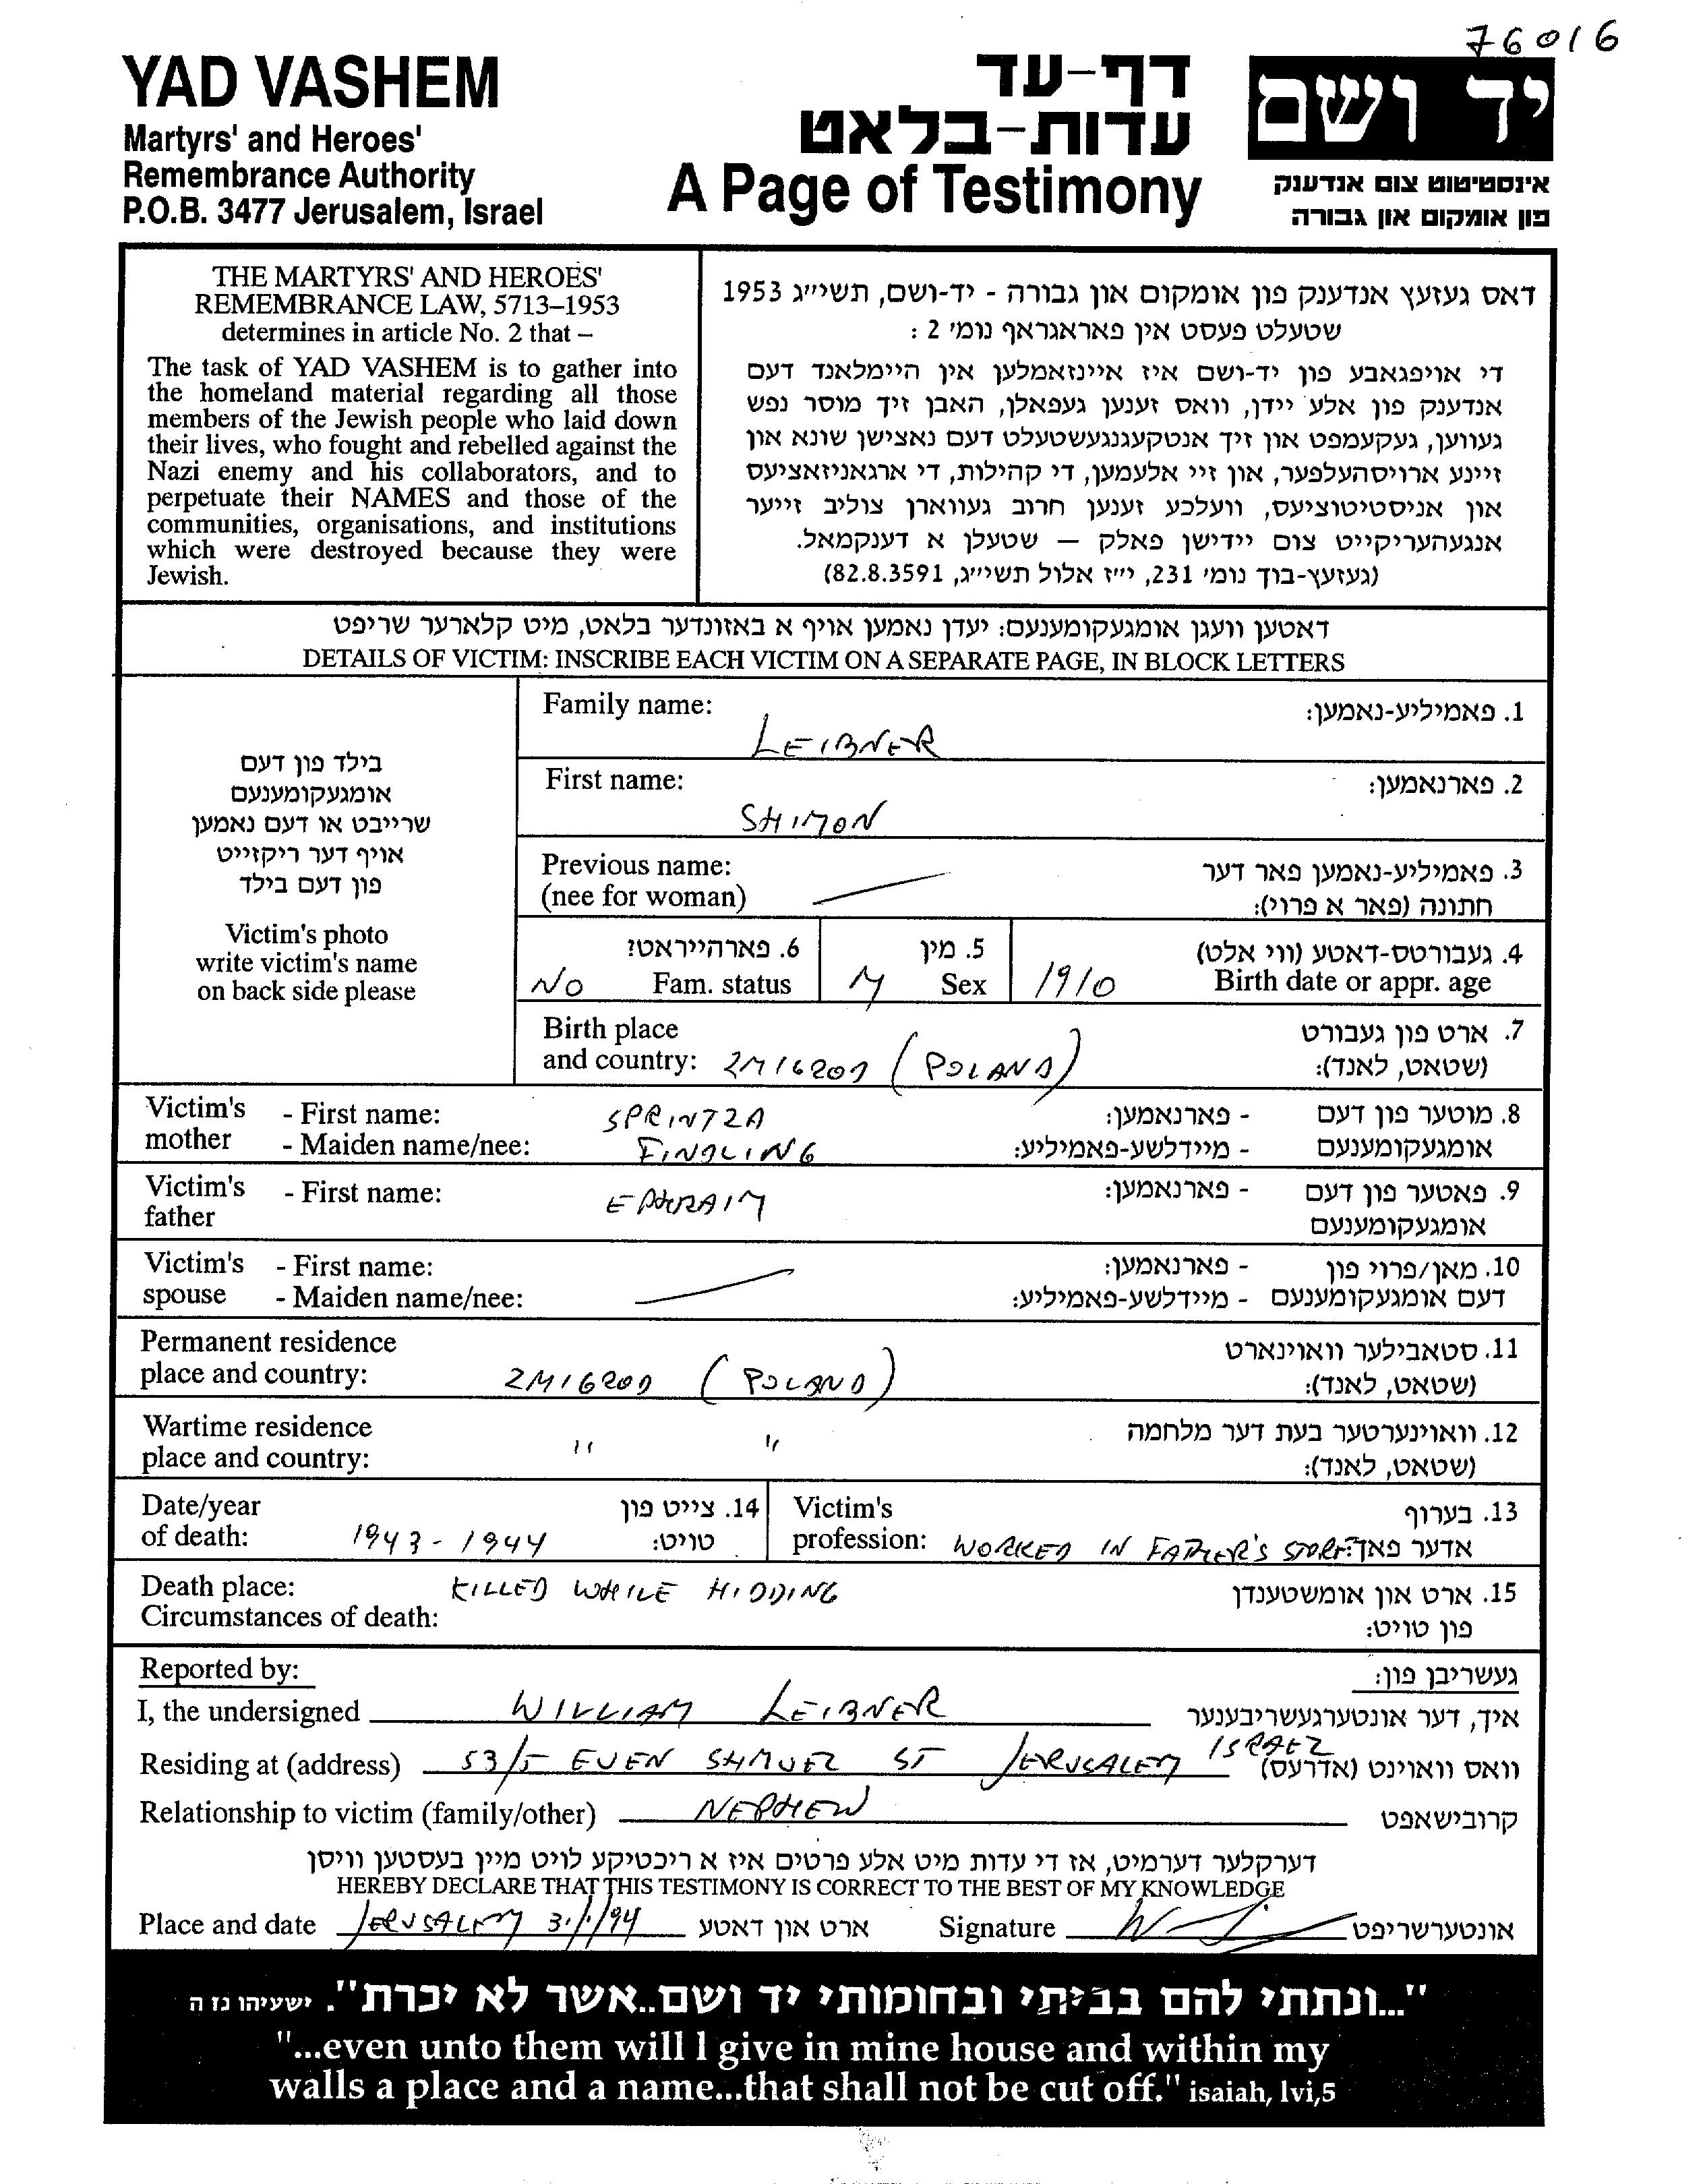 76016
YAD VASHEM
Martyrs' and Heroes'
Remembrance Authority
P.O.B. 3477 Jerusalem, Israel
דף-עד
עדות-בלאט
A Page of Testimony
יד ושם
אינסטיטוט צום אנדענק
פון אומקום און גבורה
THE MARTYRS' AND HEROES'
REMEMBRANCE LAW, 5713–1953
determines in article No. 2 that –
The task of YAD VASHEM is to gather into
the homeland material regarding all those
members of the Jewish people who laid down
their lives, who fought and rebelled against the
Nazi enemy and his collaborators, and to
perpetuate their NAMES and those of the
communities, organisations, and institutions
which were destroyed because they were
Jewish.
דאס געזעץ אנדענק פון אומקום און גבורה - יד-ושם, תשי״ג 1953
שטעלט פעסט אין פאראגראף נומ׳ 2 :
די אויפגאבע פון יד-ושם איז איינזאמלען אין היימלאנד דעם
אנדענק פון אלע יידן, וואס זענען געפאלן, האבן זיך מוסר נפש
געווען, געקעמפט און זיך אנטקעגנגעשטעלט דעם נאצישן שונא און
זיינע ארויסהעלפער, און זיי אלעמען, די קהילות, די ארגאניזאציעס
און אניסטיטוציעס, וועלכע זענען חרוב געווארן צוליב זייער
אנגעהעריקייט צום יידישן פאלק — שטעלן א דענקמאל.
(געזעץ-בוך נומ׳ 231, י״ז אלול תשי״ג, 82.8.3591)
דאטען וועגן אומגעקומענעם: יעדן נאמען אויף א באזונדער בלאט, מיט קלארער שריפט
DETAILS OF VICTIM: INSCRIBE EACH VICTIM ON A SEPARATE PAGE, IN BLOCK LETTERS
בילד פון דעם
אומגעקומענעם
שרייבט או דעם נאמען
אויף דער ריקזייט
פון דעם בילד
Victim's photo
write victim's name
on back side please
Family name: LEIBNER 1. פאמיליע-נאמען:
First name: SHIMON 2. פארנאמען:
Previous name: 3. פאמיליע-נאמען פאר דער
(nee for woman) חתונה (פאר א פרוי):
6. פארהייראט? 5. מין 4. געבורטס-דאטע (ווי אלט)
NO Fam. status M Sex 1910 Birth date or appr. age
Birth place 7. ארט פון געבורט
and country: ZMIGROD (POLAND) (שטאט, לאנד):
Victim's - First name: SPRINTZA - פארנאמען: 8. מוטער פון דעם
mother - Maiden name/nee: FINDLING - מיידלשע-פאמיליע: אומגעקומענעם
Victim's - First name: EPHRAIM - פארנאמען: 9. פאטער פון דעם
father אומגעקומענעם
Victim's - First name: - פארנאמען: 10. מאן/פרוי פון
spouse - Maiden name/nee: - מיידלשע-פאמיליע: דעם אומגעקומענעם
Permanent residence 11. סטאבילער וואוינארט
place and country: ZMIGROD (POLAND) (שטאט, לאנד):
Wartime residence 12. וואוינערטער בעת דער מלחמה
place and country: " " (שטאט, לאנד):
Date/year 14. צייט פון Victim's 13. בערוף
of death: 1943 - 1944 טויט: profession: WORKED IN FATHER'S STORE אדער פאך:
Death place: KILLED WHILE HIDDING 15. ארט און אומשטענדן
Circumstances of death: פון טויט:
Reported by: געשריבן פון:
I, the undersigned WILLIAM LEIBNER איך, דער אונטערגעשריבענער
Residing at (address) 53/5 EVEN SHMUEL ST JERUSALEM ISRAEL וואס וואוינט (אדרעס)
Relationship to victim (family/other) NEPHEW קרובישאפט
דערקלער דערמיט, אז די עדות מיט אלע פרטים איז א ריכטיקע לויט מיין בעסטען וויסן
HEREBY DECLARE THAT THIS TESTIMONY IS CORRECT TO THE BEST OF MY KNOWLEDGE
Place and date JERUSALEM 3/1/94 ארט און דאטע Signature אונטערשריפט
"...ונתתי להם בביתי ובחומותי יד ושם..אשר לא יכרת". ישעיהו נז ה
"...even unto them will I give in mine house and within my
walls a place and a name...that shall not be cut off." isaiah, lvi,5